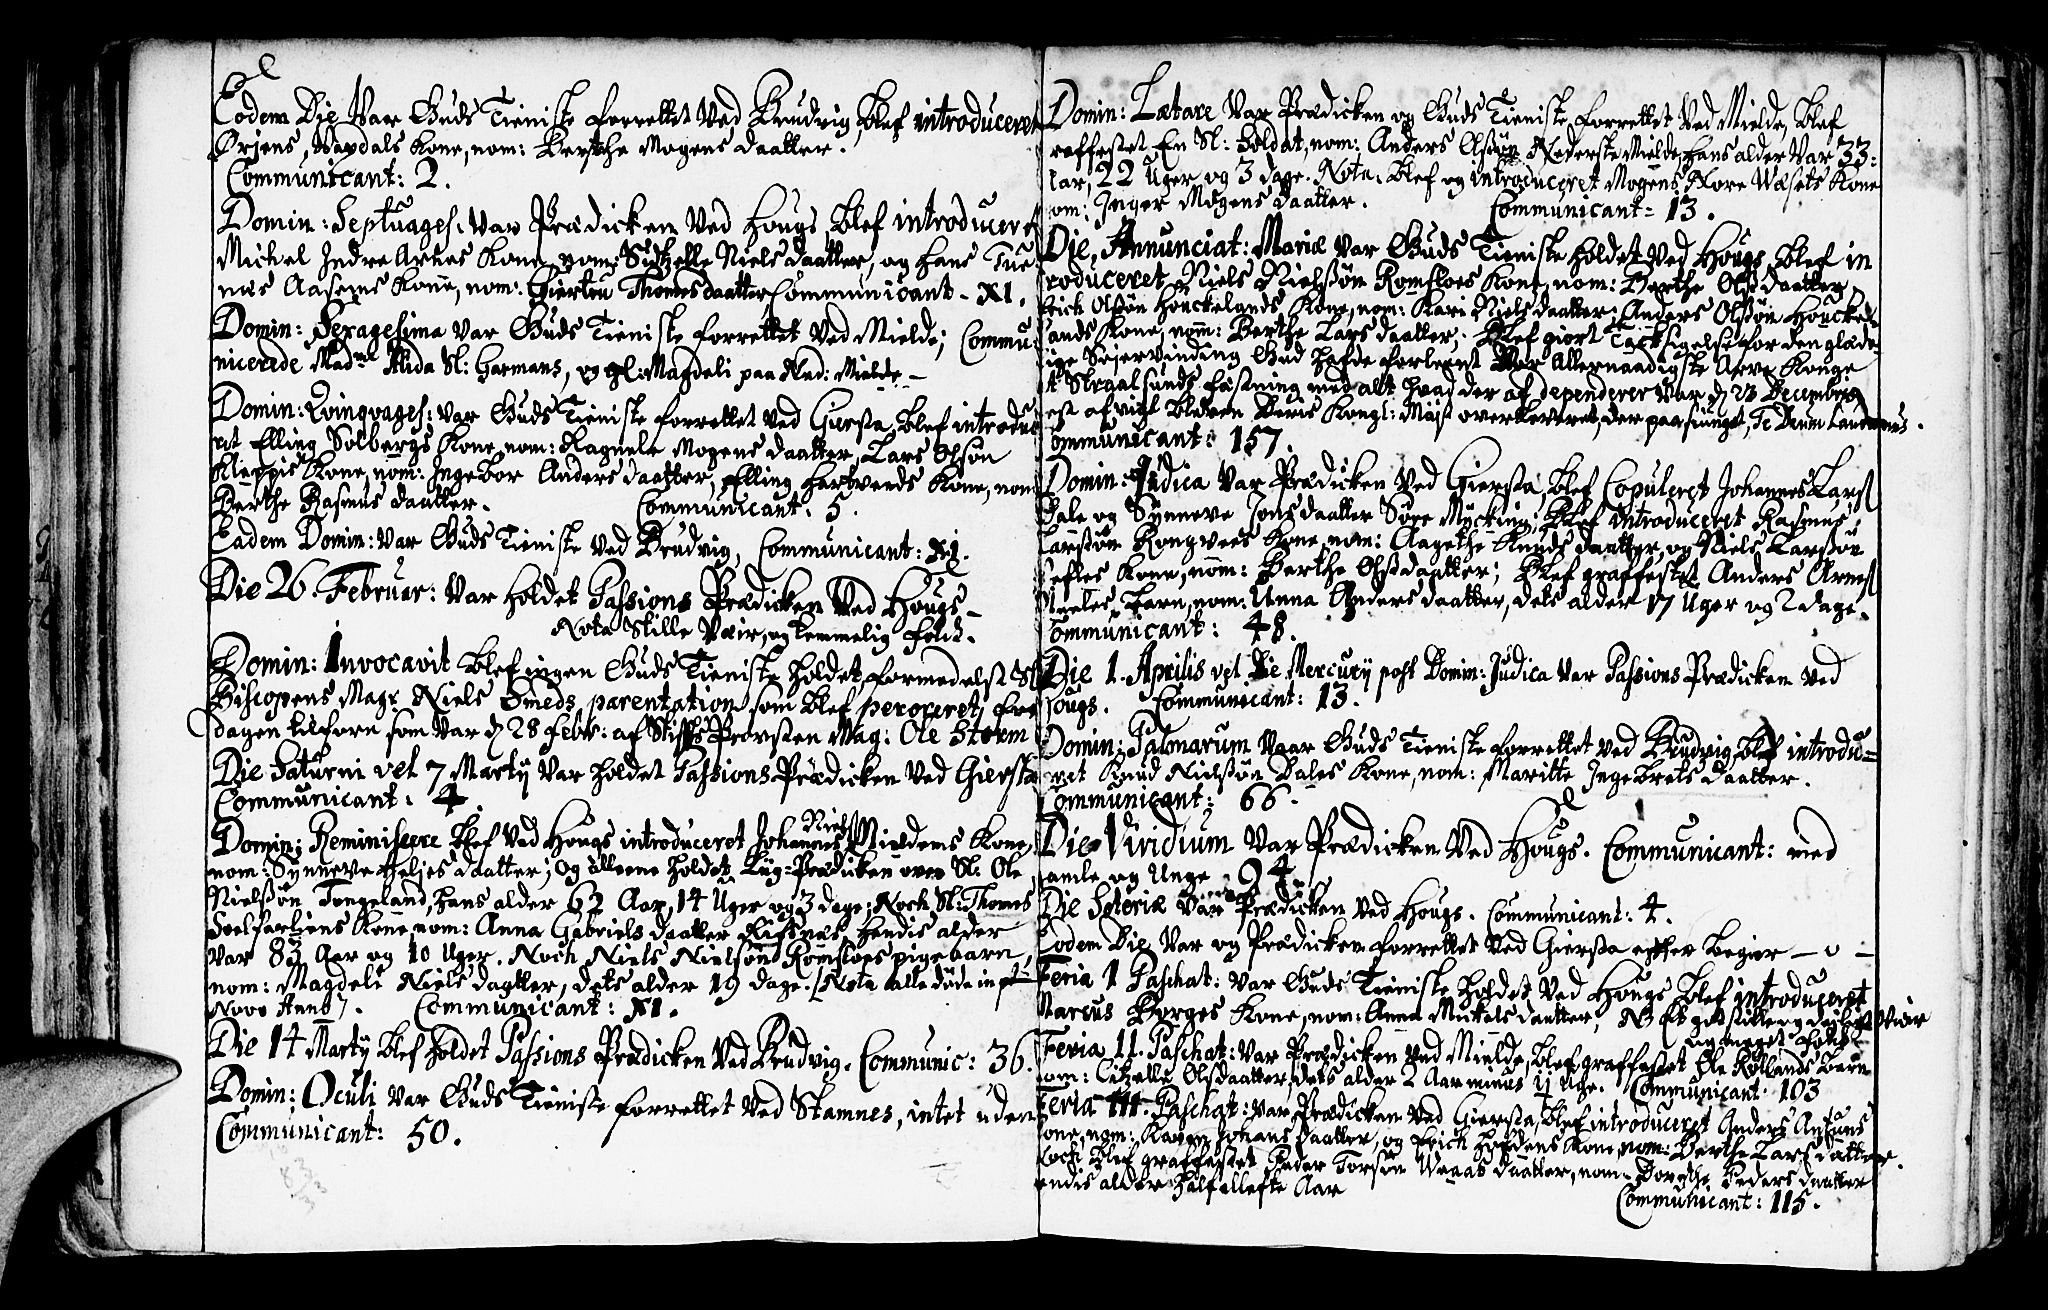 Eodem Die Var Guds Tieniste forrettet Ved Brudvig, blef introduceret
Ørjens, Vaxdals Kone, nom: Berthe Mogens daatter.
Communicant: 2.
Domin: Septuages: var Prædicken Ved Hougs, blef introduceret
Michel Indre Arnes Kone, nom: Sidtzelle Niels daatter, og Hans Tue
næs Aasems Kone, nom: Giertru Thomes daatter Communicant - XI.
Domin: Sexagesima Var Guds Tieniste forrettet Ved Mielde; Commu-
nicerede Mad.me Alida Sl: Garmans, og gl: Magdeli paa Ned: Mielde -
Domin: Qvinqvages: var Guds Tieniste forrettet Ved Giersta, blef introdu
ret Elling Solbergs Kone, nom: Ragnele Mogens daatter, Lars Olsøn
Kleppis Kone, nom: Ingebor Anders daatter, Elling Hartveds Kone, nom
Berthe Rasmus daatter. Communicant: 5.
Eadem Domin: Var Guds Tieniste Ved Brudvig, Communicant: XI.
Die 26. Februar: Var holdet Passions Prædicken Ved Hougs -
Nota Stille Væir, og temmelig Folck.
Domin: Invocavit blef ingen Guds Tieniste holdet, formedelst Sl
Biscopens Magr Niels Smeds parentation, som blef peroreret, fre
dagen tilforn som Var d 28 Febr: af Stifts Provsten Mag: Ole Storm
Die Saturni vel 7 Martij Var holdet Passions Prædicken Ved Giersta
Communicant: 4
Domin: Reminiscere blef Ved Hougs introduceret Johannes Niels Mieldems Kone,
nom: Synneve Heljes daatter; Og alleene holdet Liig-Prædicken over Sl: Ole
Nielsøn Tengeland, hans alder 62 Aar, 14 Uger og 3 dage; Noch Sl: Thomes
Soelfartiens Kone, nom: Anna Gabriels daatter Risnæs, hendis alder
Var 83 Aar og 10 Uger. Noch Niels Nielsøn Romsloes pigebarn,
nom: Magdele Niels daatter, dets alder 19 dage. [Nota alle døde in
Novo Anno]. Communicant: XI.
Die 14 Martij blef holdet Passions Prædicken Ved Brudvig. Communic: 36.
Domin: Oculi Var Guds Tieniste forrettet Ved Stamnes, intet uden
Communicant: 50.
Domin: Lætare Var Prædicken og Guds Tieniste forrettet Ved Mielde, blef
raffestet En Sl: Soldat, nom: Anders Olsøn Nederste Mielde, hans alder Var 33:
Aar, 22 Uger og 3 dage. Nota: blef og introduceret Mogens Nore Wæsets Kone
om: Inger Mogens daatter. Communicant= 13.
Die Annunciat: Mariæ Var Guds Tieniste holdet Ved Hougs, blef in
troduceret Niels Nielsøn Romsloes Kone, nom: Berthe Ols daatter,
Erich Olsøn Houckelands Kone, nom: Kari Niels daatter: Anders Olsøn Houckel
ands Kone, nom: Berthe Lars daatter: Blef giort Tacksigelse for den glæde-
lige Seiervinding Gud hafde forleent Vor Allernaadigste Arve Konge
t Straalsunds fæstning med alt hvad der af dependerer Var d 23 Decembris
est afvigt bleven Deris Kongl: Majst overleveret, der paa siunget, Te Deum Laudamus.
Communicant: 157.
Domin: Judica Var Prædicken Ved Giersta, blef Copuleret Johannes Lars
Dale og Synneve Jons daatter Søre Mycking; blef introduceret Rasmus
Larsøn Rongweds Kone, nom: Aagethe Knuds daatter, og Niels Larsøn
efles Kone, nom: Berthe Ols daatter; Blef graffestet Anders Arnes
barn, nom: Anna Anders daatter, dets alder 17 Uger og 2 dage.
Communicant: 48.
Die 1. Aprilis vel Die Mercurij post Domin: Judica Var Passions Prædicken Ved
Hougs. Communicant: 13.
Domin: Palmarum Vaar Guds Tieniste forrettet Ved Brudvig, blef introdu=
ret Knud Nielsøn Dales Kone, nom: Maritte Ingebrets daatter.
Communicant: 66.
Die Viridium Var Prædicken Ved Hougs. Communicant: med
amle og Unge 94.
Die Soteriæ Var Prædicken Ved Hougs. Communicant: 4.
Eodem Die Var og Prædicken forrettet Ved Giersta efther begier - 0 -
Feria 1 Paschat: Var Guds Tieniste holdet Ved Hougs blef introduceret
Marcus Borges Kone, nom: Anna Mickels daatter, NB Et got stille og deiligt Veir
og meget Folck
Feria 11. Paschat: Var Prædicken ved Mielde, blef graffestet Ole Røllands Barn
nom: Citzelle Olsdaatter, dets alder 2 Aar minus ij Uge. Communicant 103
Feria 111. Paschat: var Prædicken Ved Giersta, blef introduceret Anders Antuns
Kone, nom: Karen Johans daatter, og Erich Hordens Kone, nom: Berthe Lars datter.
Noch blef graffestet Peder Torsøn Waaas daatter, nom: Dorethe Peders daatter
endis alder halfellefte Aar
Communicant: 115.